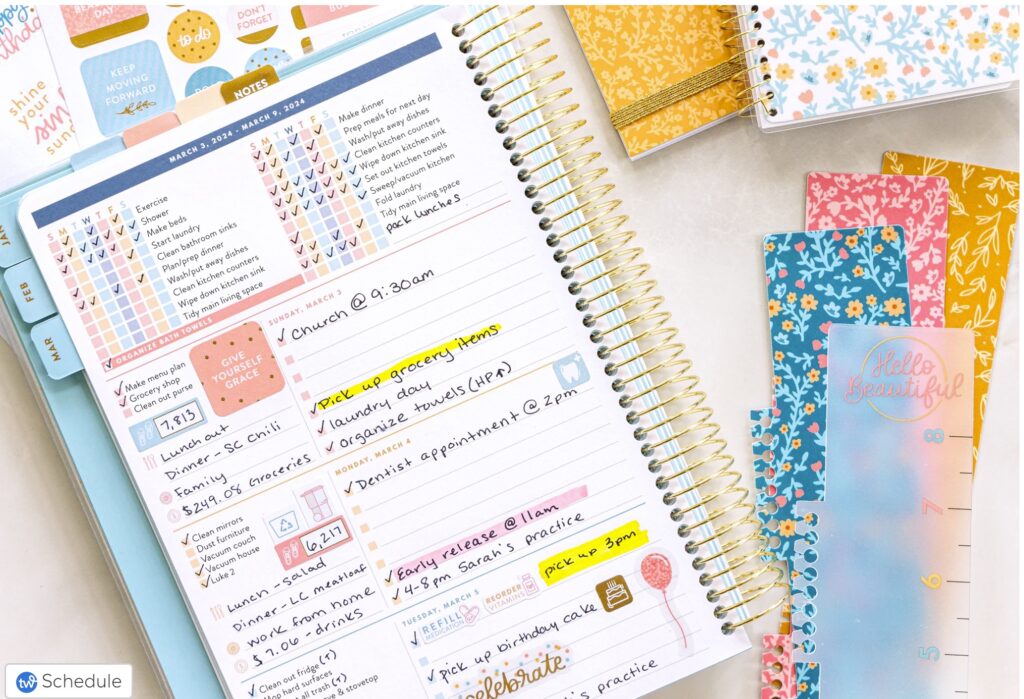 BEAU
DAY
DON'T
FORGET
to do
KEEP
MOVING
FORWARD
shine
your
NOTES
MARCH 3, 2024 - MARCH 9, 2024
S M T W T F S
Exercise
Shower
Make beds
Start laundry
Clean bathroom sinks
Plan/prep dinner
Wash/put away dishes
Clean kitchen counters
Wipe down kitchen sink
Tidy main living space
S M T W T F S
Make dinner
Prep meals for next day
Wash/put away dishes
Clean kitchen counters
Wipe down kitchen sink
Set out kitchen towels
Sweep/vacuum kitchen
Fold laundry
Tidy main living space
pack lunches
JAN
FEB
MAR
ORGANIZE BATH TOWELS
Make menu plan
Grocery shop
Clean out purse
GIVE
YOURSELF
GRACE
7,813
Lunch out
Dinner - SC Chili
Family
$249.08 Groceries
SUNDAY, MARCH 3
Church @ 9:30am
Pick up grocery items
laundry day
organize towels (HP↑)
Clean mirrors
Dust furniture
Vacuum couch
Vacuum house
Luke 2
6,217
Lunch - Salad
Dinner - LC meatloaf
Work from home
$7.06 - drinks
MONDAY, MARCH 4
Dentist appointment @ 2pm
Early release @ 11am
4-8pm Sarah's practice
pick up 3pm
Clean out fridge (↑)
Mop hard surfaces
all trash (↑)
& stovetop
TUESDAY, MARCH 5
REFILL
MEDICATION
REORDER
VITAMINS
pick up birthday cake
celebrate
practice
Hello
Beautiful
8
7
6
5
tw Schedule